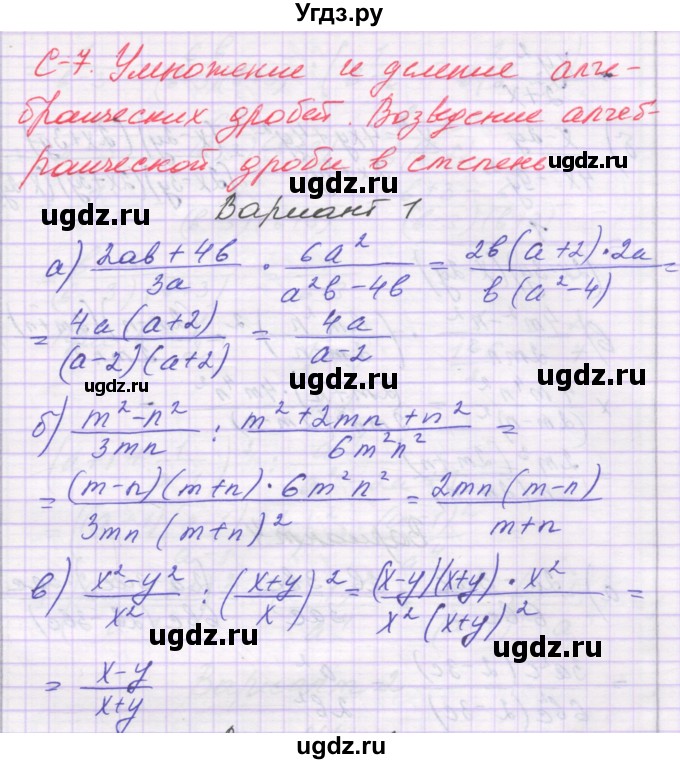 Угдз.ру
С-7. Умножение и деление алге-
браических дробей. Возведение алгеб-
раической дроби в степень
ugdz.ru ugdz.ru
Вариант 1
а) (2ab + 4b)/(3a) · (6a²)/(a²b − 4b) = (2b(a+2)·2a)/(b(a²−4)) =
= (4a(a+2))/((a−2)(a+2)) = (4a)/(a−2)
ugdz.ru ugdz.ru
б) (m² − n²)/(3mn) : (m² + 2mn + n²)/(6m²n²) =
= ((m−n)(m+n)·6m²n²)/(3mn(m+n)²) = (2mn(m−n))/(m+n)
ugdz.ru
в) (x² − y²)/(x²) : ((x+y)/x)² = ((x−y)(x+y)·x²)/(x²(x+y)²) =
ugdz.ru
= (x−y)/(x+y)
ugdz.ru ugdz.ru